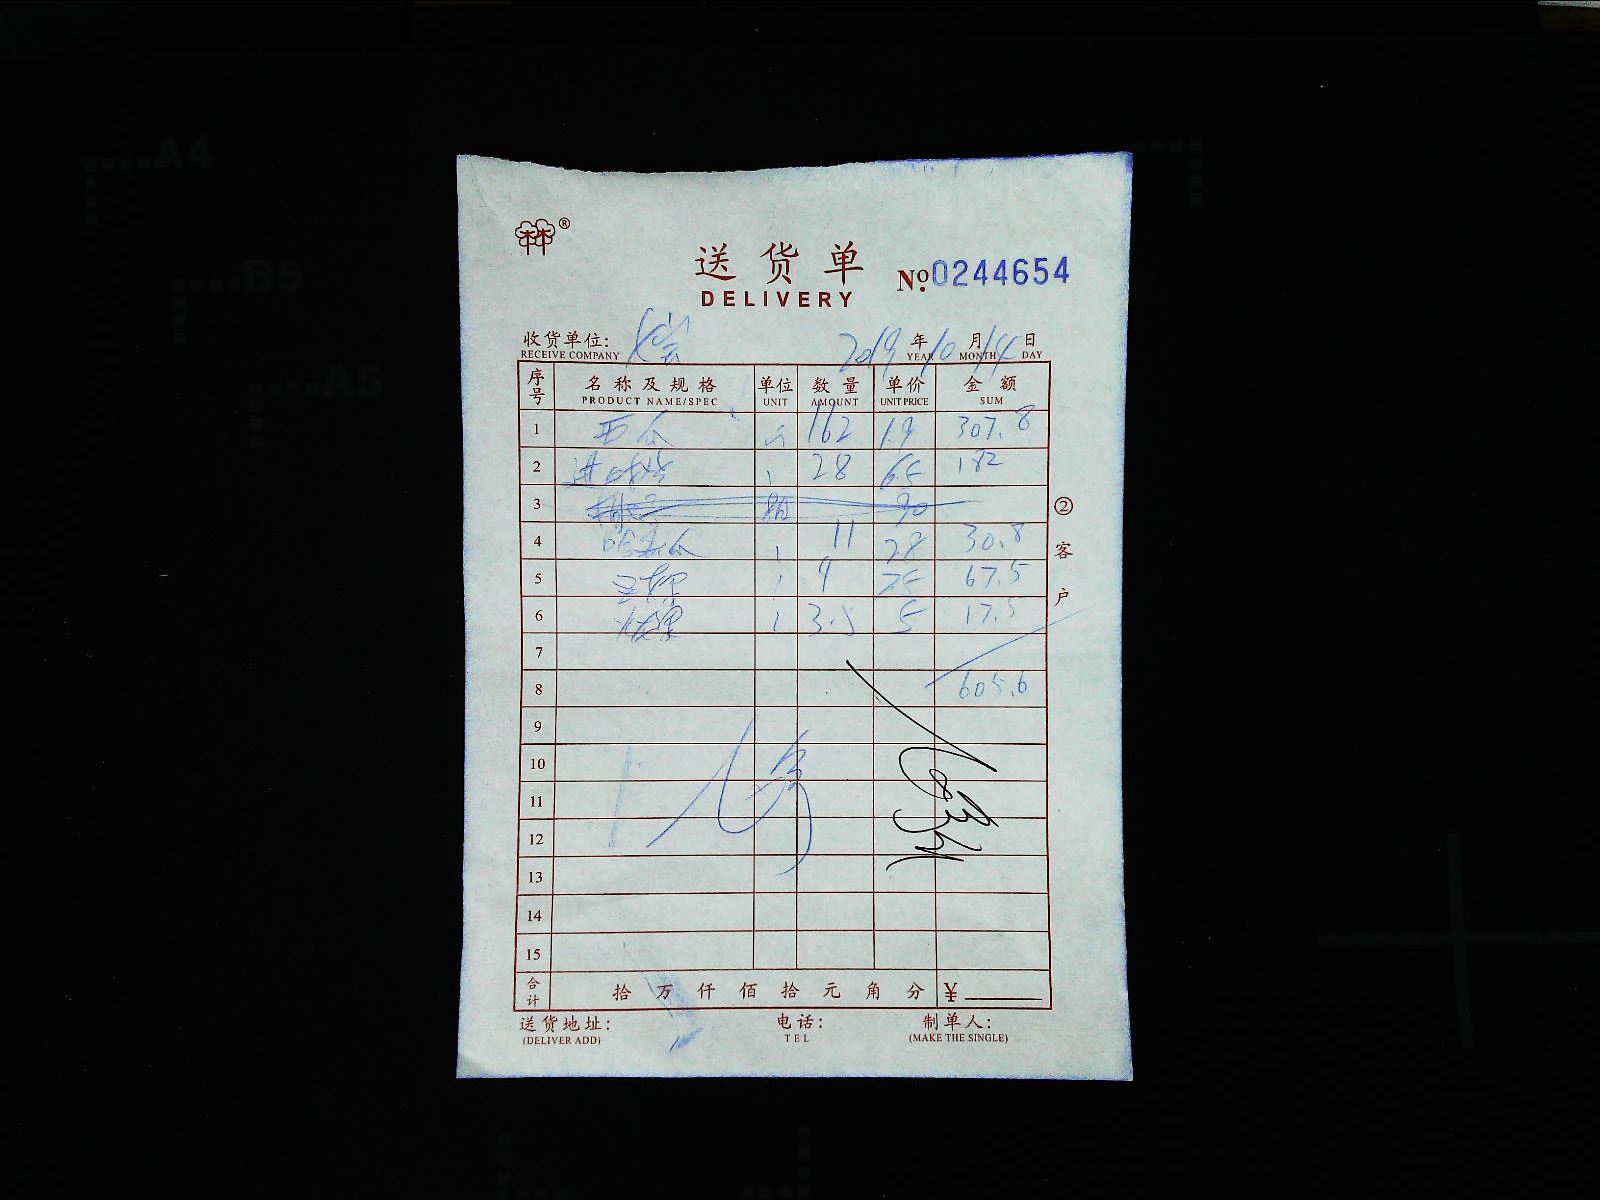 A4
B5
A5
®
送货单
DELIVERY
№ 0244654
收货单位:
RECEIVE COMPANY
2019 年 10 月 14 日
YEAR MONTH DAY
序号 名称及规格 单位 数量 单价 金额
PRODUCT NAME/SPEC UNIT AMOUNT UNIT PRICE SUM
1 西瓜 斤 162 1.9 307.8
2 28 6.5 182
3 箱 90
4 哈密瓜 11 28 30.8
5 9 75 67.5
6 3.5 5 17.5
7
8 605.6
9
10
11
12
13
14
15
合计 拾 万 仟 佰 拾 元 角 分 ¥
②客户
送货地址: 电话: 制单人:
(DELIVER ADD) TEL (MAKE THE SINGLE)